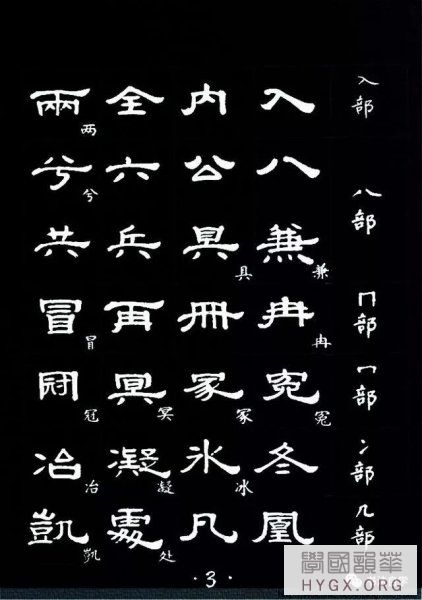 入部 入 内 全 兩 两
八部 八 公 六 兮 兮
兼 兼 具 具 兵 共
冂部 冉 冉 冊 再 冒 冒
冖部 冤 冤 冢 冢 冥 冥 冠 冠
冫部 冬 氷 冰 凝 凝 冶 冶
几部 凰 凡 處 处 凱 凯
·3·
學國韻華
HYGX.ORG